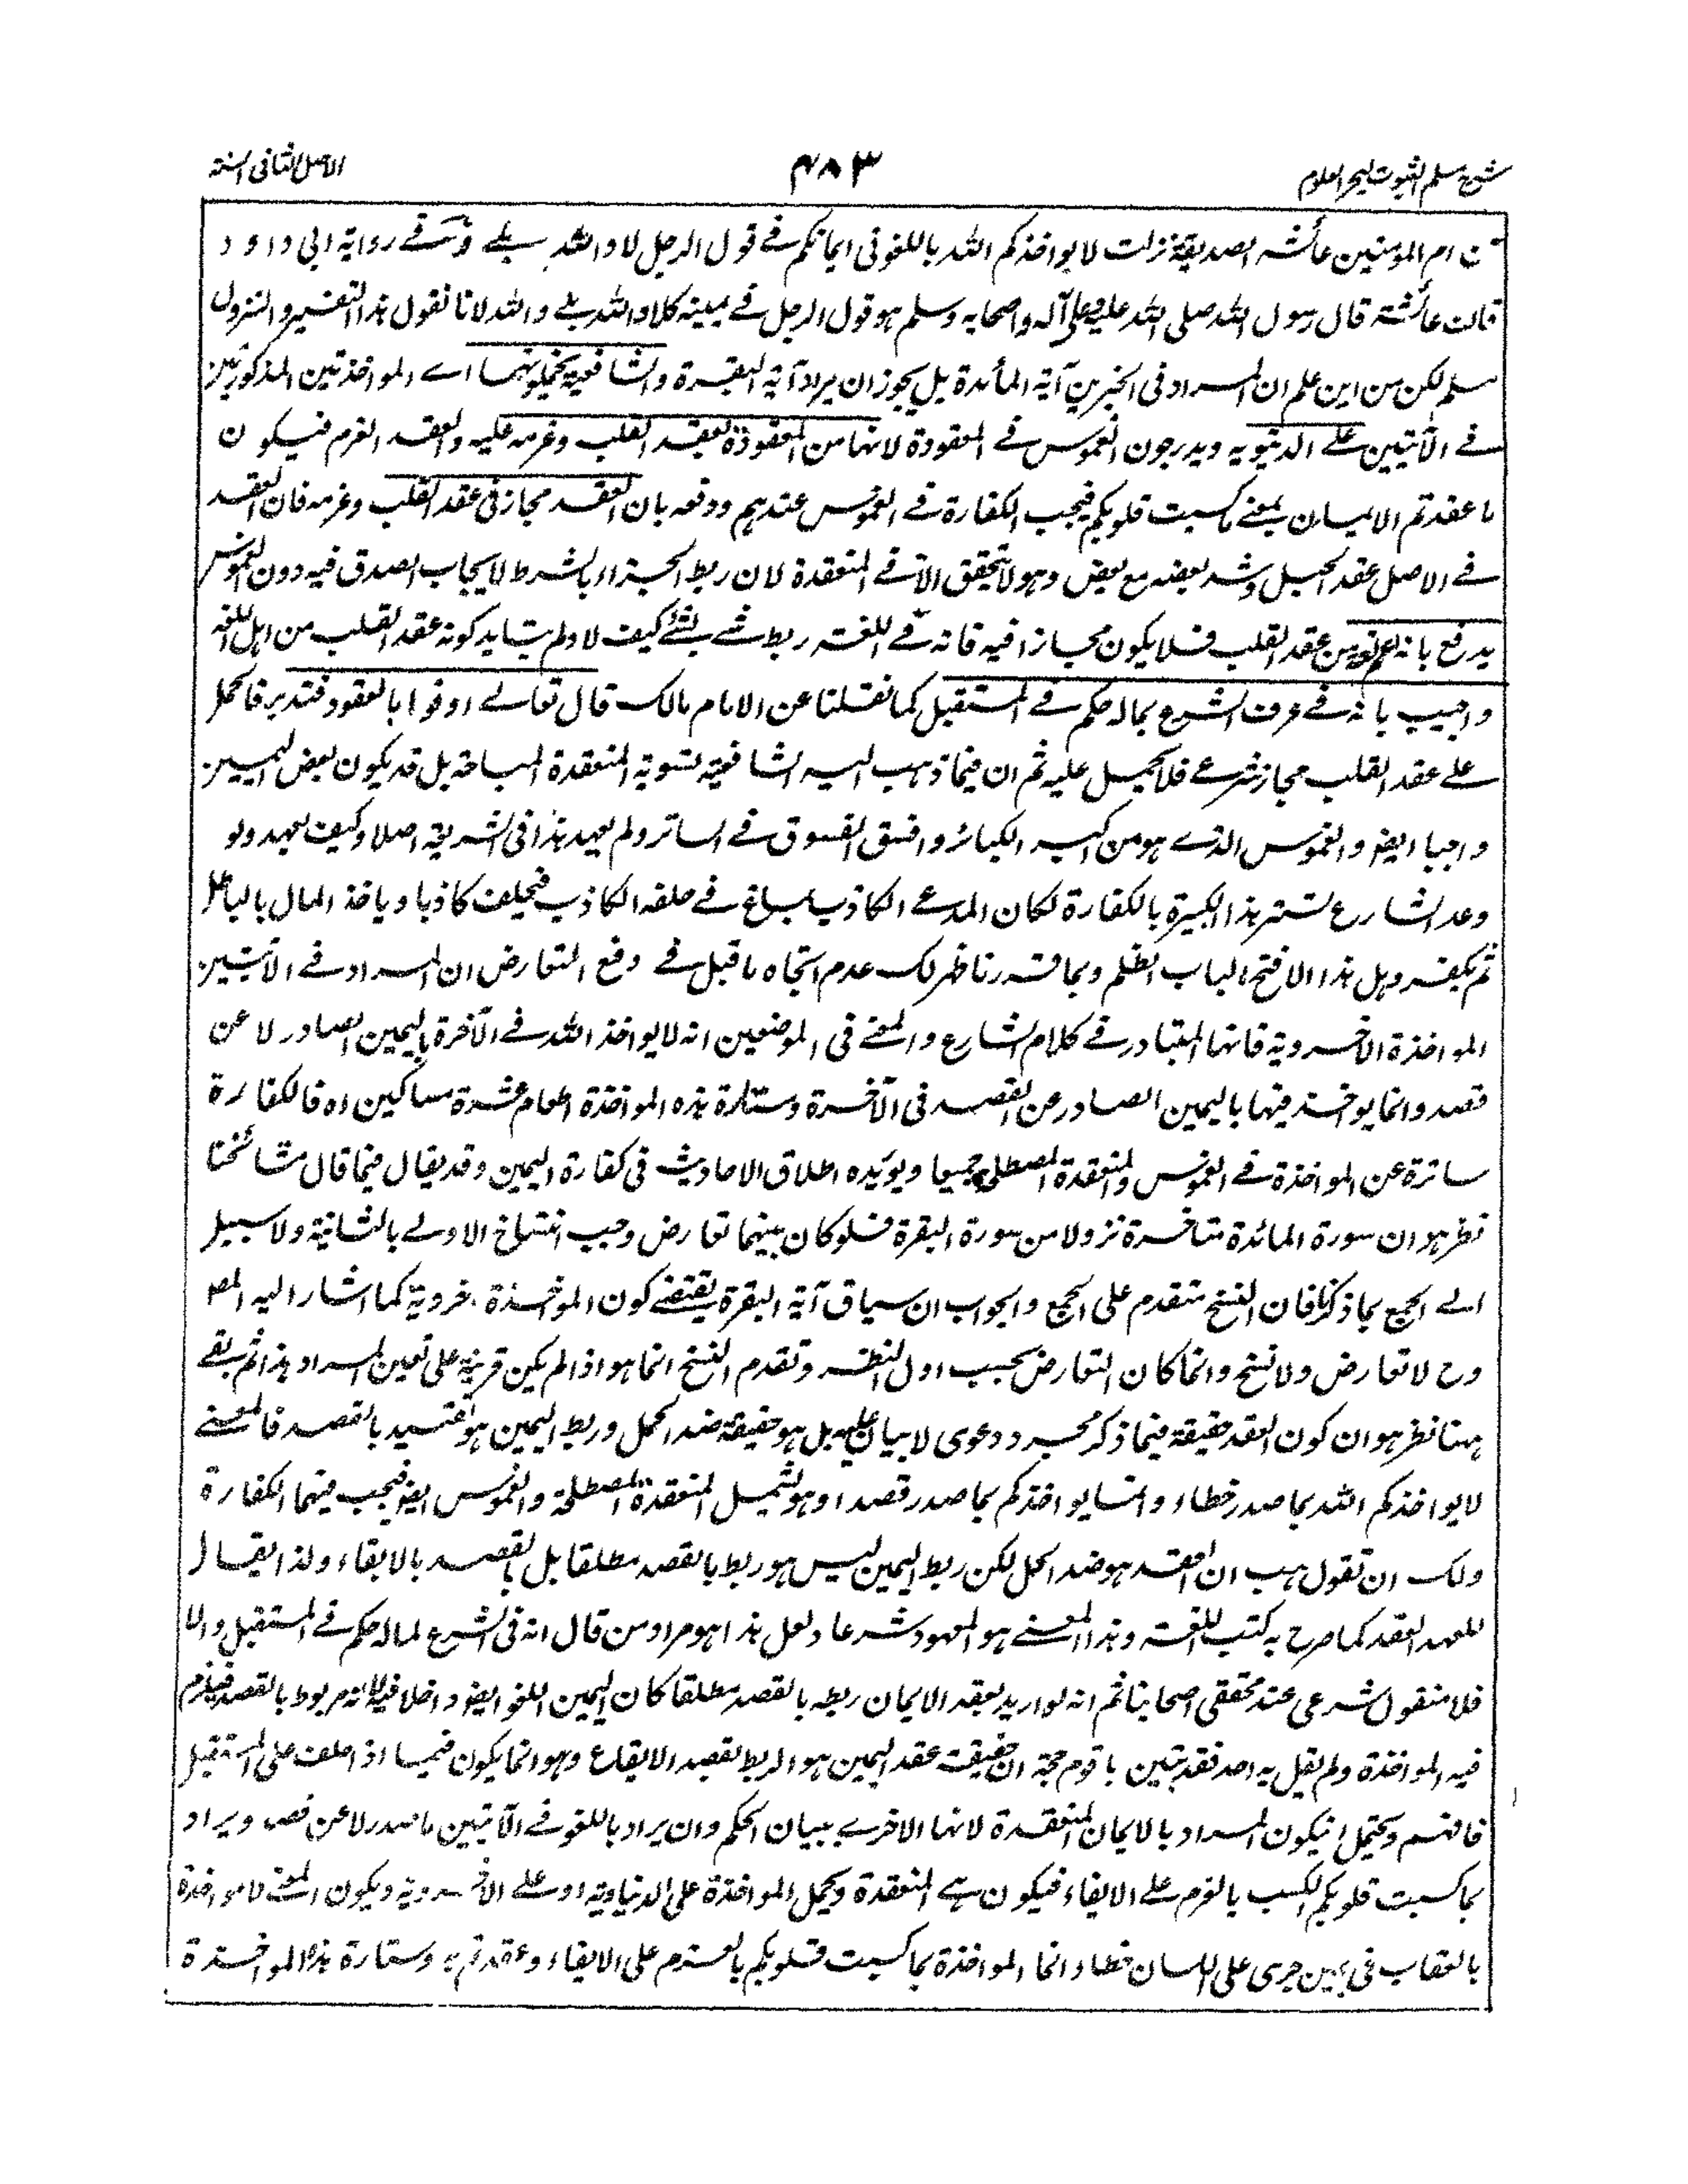 شرح مسلم الثبوت لبحر العلوم
۴۸۳
الاصل الثانی السنة
ام المومنین عائشہ الصدیقة نزلت لا یواخذکم اللہ باللغو فی ایمانکم فے قول الرجل لا واللہ بلے و فے روایة ابی داود
قالت عائشة قال رسول اللہ صلی اللہ علیہ وعلی آلہ واصحابہ وسلم ہو قول الرجل فے یمینہ کلا واللہ بلے واللہ لانا نقول ہذا التفسیر والنزول
مسلم لکن من این علم ان المراد فی الخبرین آیة المائدة بل یجوز ان یراد آیة البقرة والشافعیة یحملونہما اے المواخذتین المذکورتین
فے الآیتین علے الدنیویہ ویدرجون الغموس فے المعقودة لانہا من المعقودة بعقد القلب وعزمہ علیہ والعقد العزم فیکون
ما عقدتم الایمان بمعنے ما کسبت قلوبکم فیجب الکفارة فے الغموس عندہم ودفعہ بان العقد مجاز فی عقد القلب وعزمہ فان العقد
فے الاصل عقد الحبل وشد بعضہ مع بعض وہو لا یتحقق الا فے المنعقدة لان ربط الجزاء بالشرط لایجاب الصدق فیہ دون الغموس
یدفع بانہ اعم من عقد القلب فلا یکون مجازا فیہ فانہ فے اللغة ربط شے بشئے کیف لا ولم یشاید کونہ عقد القلب من اہل اللغة
واجیب بانہ فے عرف الشرع بمالہ حکم فے المستقبل کما نقلنا عن الامام مالک قال تعالے اوفوا بالعقود فتدبر فالحمل
علے عقد القلب مجاز شرعے فلا یحمل علیہ ثم ان فیما ذہب الیہ الشافعیة تسویة المنعقدة المباحة بل قد یکون بعض الیمین
واجبا ایضو والغموس الذے ہو من اکبر الکبائر وافسق الفسوق فے الساتر ولم یعہد ہذا فی الشریعة اصلا وکیف یعہد ولو
وعد الشارع تستر ہذا الکبیرة بالکفارة لکان المدعے الکاذب یساغ فے حلفہ الکاذب فیحلف کاذبا ویاخذ المال بالباطل
ثم یکفر وہل ہذا الا فتح لباب الظلم وبما قررنا ظہر لک عدم اتجاہ ما قیل فے دفع التعارض ان المراد فے الآیتین
المواخذة الاخرویة فانہا المتبادر فے کلام الشارع والمعنے فی الموضعین انہ لا یواخذ اللہ فے الآخرة بالیمین الصادر لا عن
قصد وانما یواخذ فیہا بالیمین الصادر عن القصد فی الآخرة وستارة ہذہ المواخذة اطعام عشرة مساکین اہ فالکفارة
ساترة عن المواخذة فے الغموس والمنعقدة المصطلحة جمیعا ویویدہ اطلاق الاحادیث فی کفارة الیمین وقد یقال فیما قال مشائخنا
نظر ہو ان سورة المائدة متاخرة نزولا من سورة البقرة فلو کان بینہما تعارض وجب انتساخ الاولے بالثانیة ولا سبیل
الے الجمع بما ذکرنا فان النسخ متقدم علی الجمع والجواب ان سیاق آیة البقرة یقتضے کون المواخذة اخرویة کما اشار الیہ المص
وح لا تعارض ولا نسخ وانما کان التعارض بحسب اول النظر وتقدم النسخ انما ہو اذا لم یکن قرینة علی تعین المراد ہذا ثم بقے
ہہنا نظر ہو ان کون العقد حقیقة فیما ذکر مجرد دعوی لا بیان علیہ بل ہو حقیقة ضد الحل وربط الیمین ہو تقیید بالقصد فالمعنے
لا یواخذکم اللہ بما صدر خطاء وانما یواخذکم بما صدر قصدا وہو یشمل المنعقدة المصطلحة والغموس ایضو فیجب فیہما الکفارة
ولک ان تقول ہب ان العقد ہو ضد الحل لکن ربط الیمین لیس ہو ربط بالقصد مطلقا بل بالقصد بالایفاء ولذا یقال
للعہد العقد کما صرح بہ کتب اللغة وہذا المعنے ہو المعہود شرعا ولعل ہذا ہو مراد من قال انہ فی الشرع لمالہ حکم فے المستقبل والا
فلا منقول شرعی عند محققی اصحابنا ثم انہ لو ارید بعقد الایمان ربطہ بالقصد مطلقا کان الیمین اللغو ایضو داخلا فیہ لانہ مربوط بالقصد فیلزم
فیہ المواخذة ولم یقل بہ احد فقد تبین باقوم حجة ان حقیقة عقد الیمین ہو الربط بقصد الایقاع وہو انما یکون فیما اذا حلف علی المستقبل
فافہم ویحتمل ان یکون المراد بالایمان المنعقدة لانہا الاخرے ببیان الحکم وان یراد باللغو فے الآیتین ما صدر لا عن قصد ویراد
بما کسبت قلوبکم الکسب بالعزم علے الایفاء فیکون ہے المنعقدة ویحمل المواخذة علی الدنیاویة او علے الاخرویة ویکون المعنے لا مواخذة
بالعقاب فی یمین جری علی اللسان خطاء وانما المواخذة بما کسبت قلوبکم بالعزم علی الایفاء وعقدتم بہ وستارة ہذا المواخذة